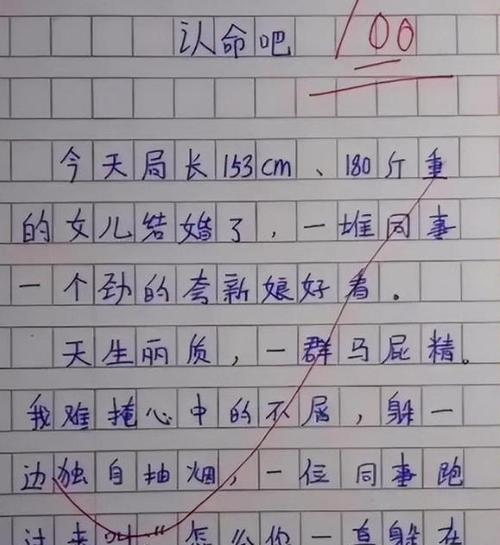 认命吧
100
今天局长153cm、180斤重
的女儿结婚了，一堆同事
一个劲的夸新娘好看。
天生丽质，一群马屁精。
我难掩心中的不屑，躲一
边独自抽烟，一位同事跑
过来叫“怎么你一直躲在